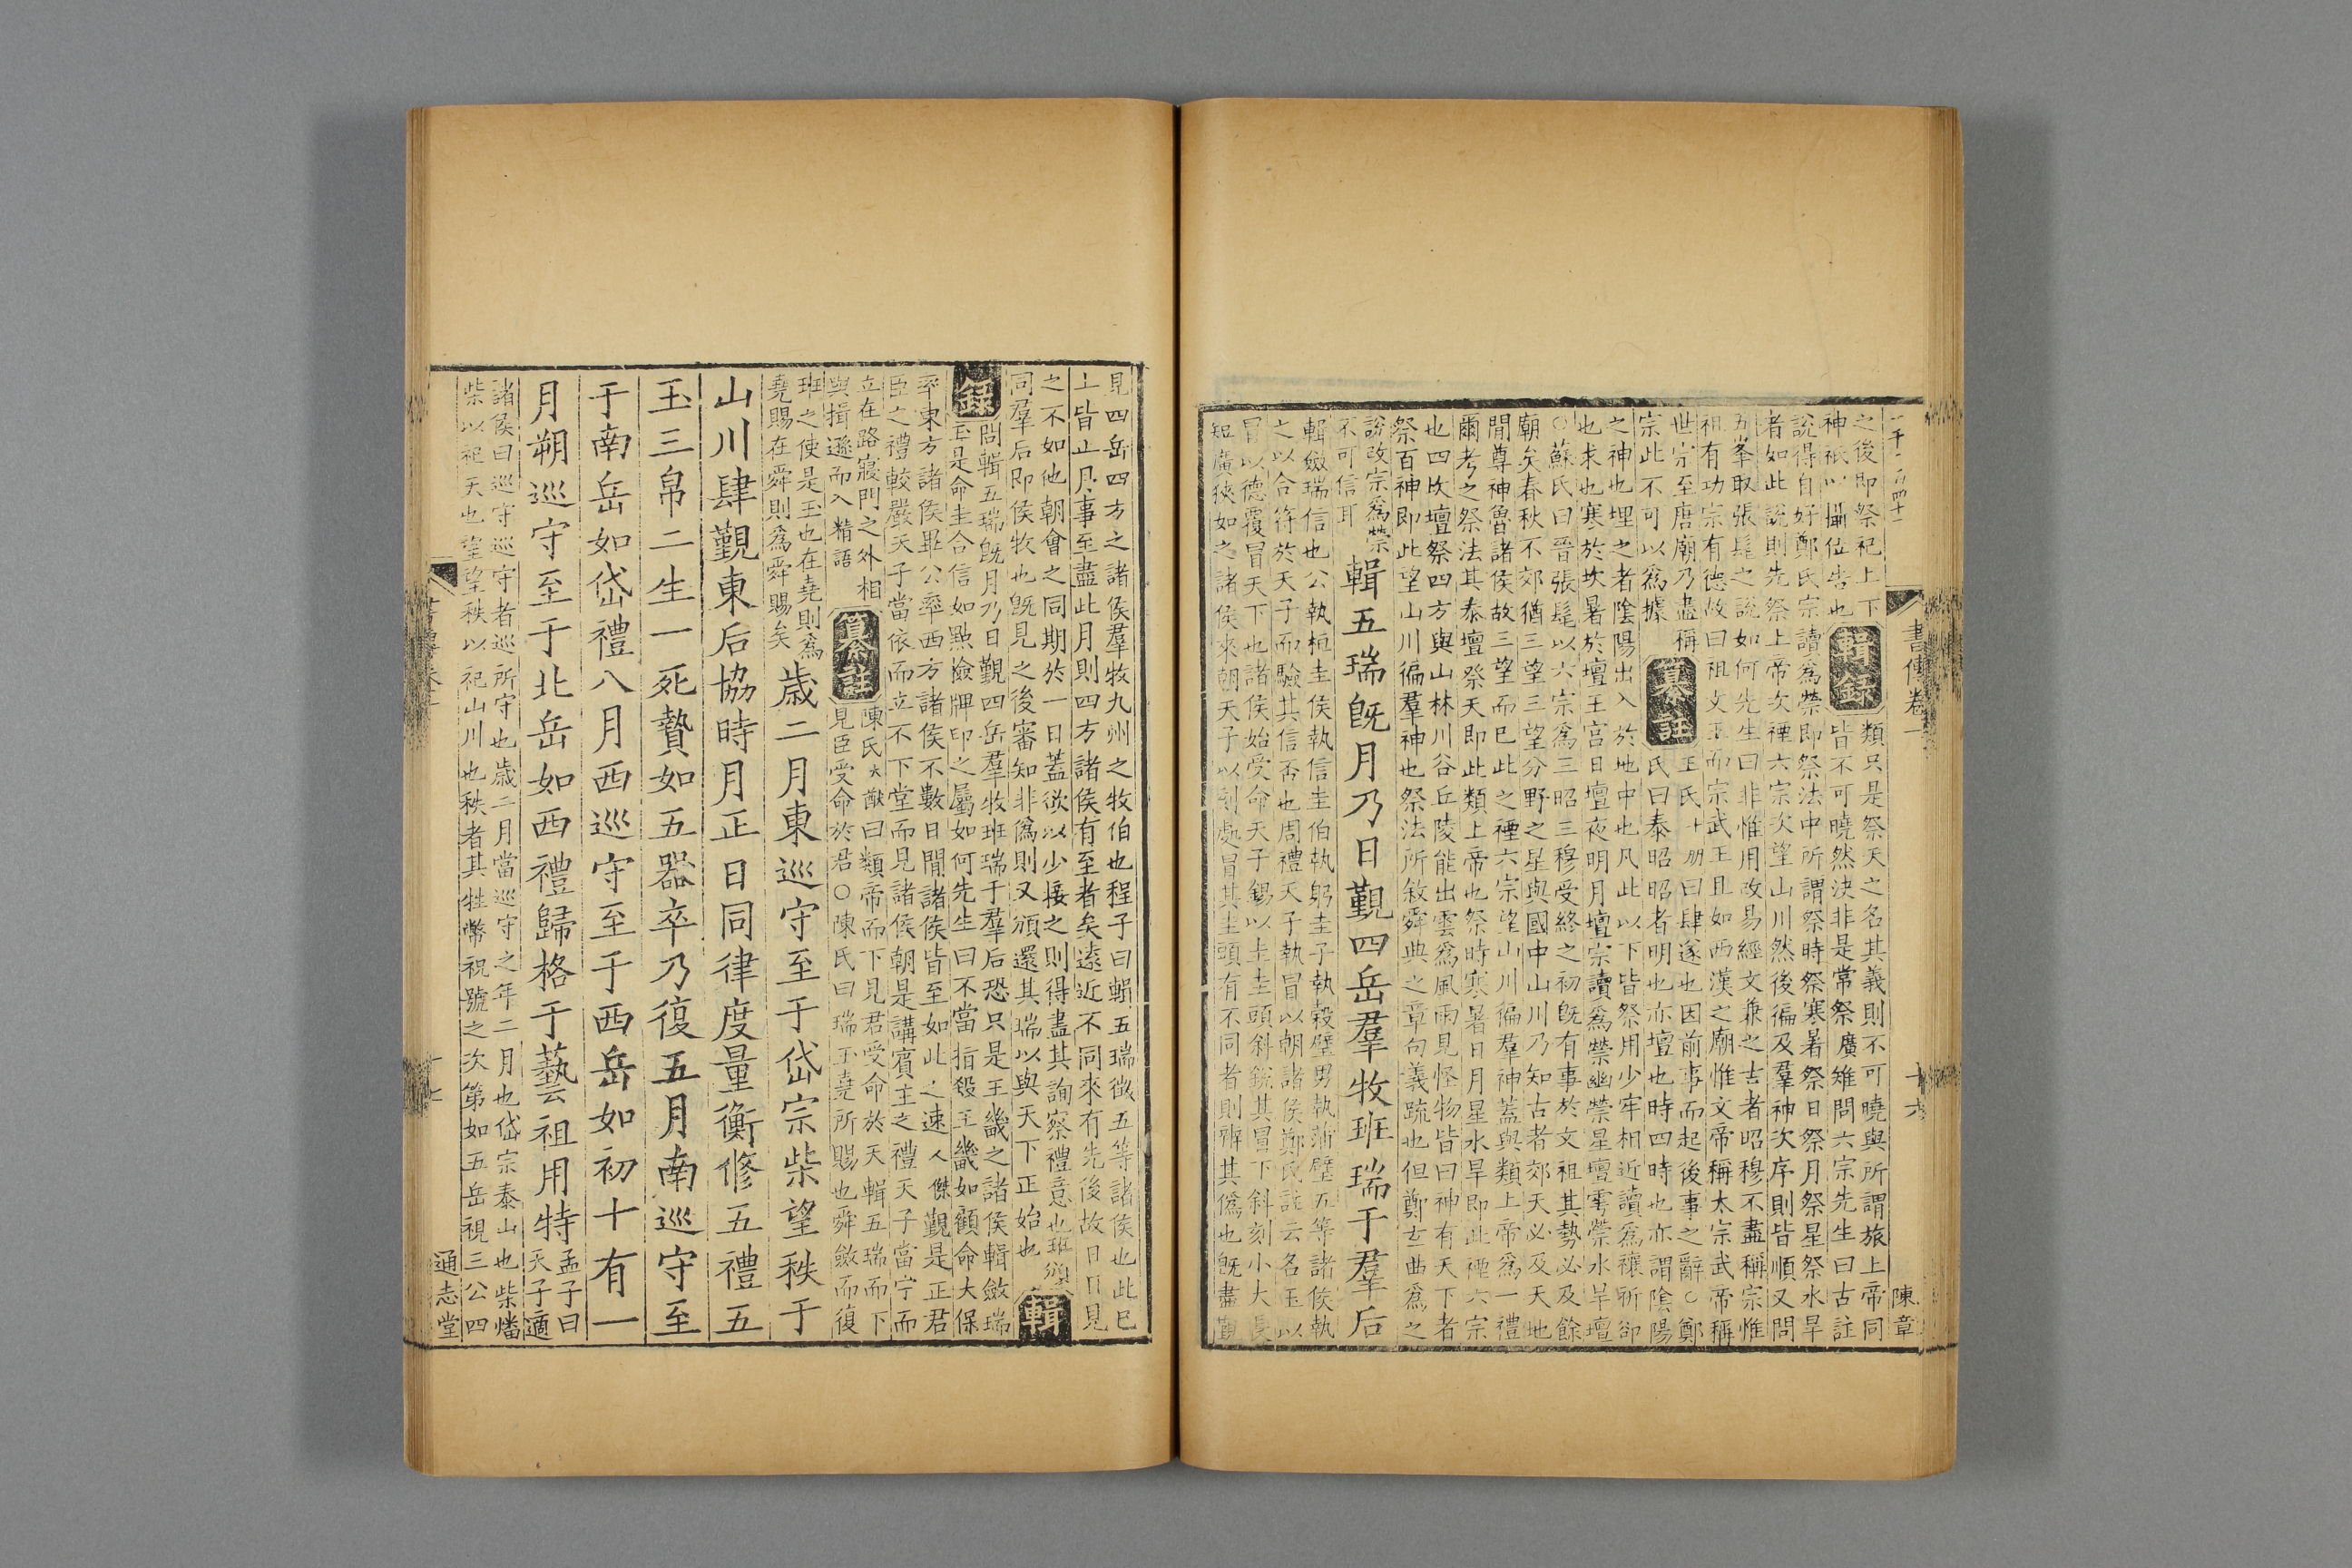 一千一百四十一
書傳卷一
十六
陳章
之後即祭祀上下
神祇以攝位告也
輯錄
類只是祭天之名其義則不可曉與所謂旅上帝同
皆不可曉然決非是常祭廣雉問六宗先生曰古註
說得自好鄭氏宗讀爲禜即祭法中所謂祭時祭寒暑祭日祭月祭星祭水旱
者如此說則先祭上帝次禋六宗次望山川然後徧及羣神次序則皆順又問
五峯取張髦之說如何先生曰非惟用改易經文兼之古者昭穆不盡稱宗惟
祖有功宗有德故曰祖文王而宗武王且如西漢之廟惟文帝稱太宗武帝稱
世宗至唐廟乃盡稱
宗此不可以爲據
纂註
王氏十朋曰肆遂也因前事而起後事之辭○鄭
氏曰泰昭昭者明也亦壇也時四時也亦謂陰陽
之神也埋之者陰陽出入於地中也凡此以下皆祭用少牢相近讀爲禳祈卻
也求也寒於坎暑於壇王宮日壇夜明月壇宗讀爲禜幽禜星壇雩禜水旱壇
○蘇氏曰晉張髦以六宗爲三昭三穆受終之初旣有事於文祖其勢必及餘
廟矣春秋不郊猶三望三望分野之星與國中山川乃知古者郊天必及天地
閒尊神魯諸侯故三望而已此之禋六宗望山川徧羣神蓋與類上帝爲一禮
爾考之祭法其泰壇祭天即此類上帝也祭時寒暑日月星水旱即此禋六宗
也四坎壇祭四方與山林川谷丘陵能出雲爲風雨見怪物皆曰神有天下者
祭百神即此望山川徧羣神也祭法所敘舜典之章句義疏也但鄭玄曲爲之
說改宗爲禜
不可信耳
輯五瑞旣月乃日覲四岳羣牧班瑞于羣后
輯斂瑞信也公執桓圭侯執信圭伯執躬圭子執穀璧男執蒲璧五等諸侯執
之以合符於天子而驗其信否也周禮天子執冒以朝諸侯鄭氏註云名玉以
冒以德覆冒天下也諸侯始受命天子錫以圭圭頭斜銳其冒下斜刻小大長
短廣狹如之諸侯來朝天子以刻處冒其圭頭有不同者則辨其僞也旣盡覲
見四岳四方之諸侯羣牧九州之牧伯也程子曰輯五瑞徵五等諸侯也此已
上皆正月事至盡此月則四方諸侯有至者矣遠近不同來有先後故日日見
之不如他朝會之同期於一日蓋欲以少接之則得盡其詢察禮意也班頒
同羣后即侯牧也旣見之後審知非僞則又頒還其瑞以與天下正始也
輯
錄
問輯五瑞旣月乃日覲四岳羣牧班瑞于羣后恐只是王畿之諸侯輯斂瑞
玉是命圭合信如點檢牌印之屬如何先生曰不當指殺王畿如顧命大保
率東方諸侯畢公率西方諸侯不數日閒諸侯皆至如此之速人傑覲是正君
臣之禮較嚴天子當依而立不下堂而見諸侯朝是講賓主之禮天子當宁而
立在路寢門之外相
與揖遜而入精語
纂註
陳氏大猷曰類帝而下見君受命於天輯五瑞而下
見臣受命於君○陳氏曰瑞玉堯所賜也舜斂而復
班之使是玉也在堯則爲
堯賜在舜則爲舜賜矣
歲二月東巡守至于岱宗柴望秩于
山川肆覲東后協時月正日同律度量衡修五禮五
玉三帛二生一死贄如五器卒乃復五月南巡守至
于南岳如岱禮八月西巡守至于西岳如初十有一
月朔巡守至于北岳如西禮歸格于藝祖用特
孟子曰
天子適
諸侯曰巡守巡守者巡所守也歲二月當巡守之年二月也岱宗泰山也柴燔
柴以祀天也望望秩以祀山川也秩者其牲幣祝號之次第如五岳視三公四
十七
通志堂